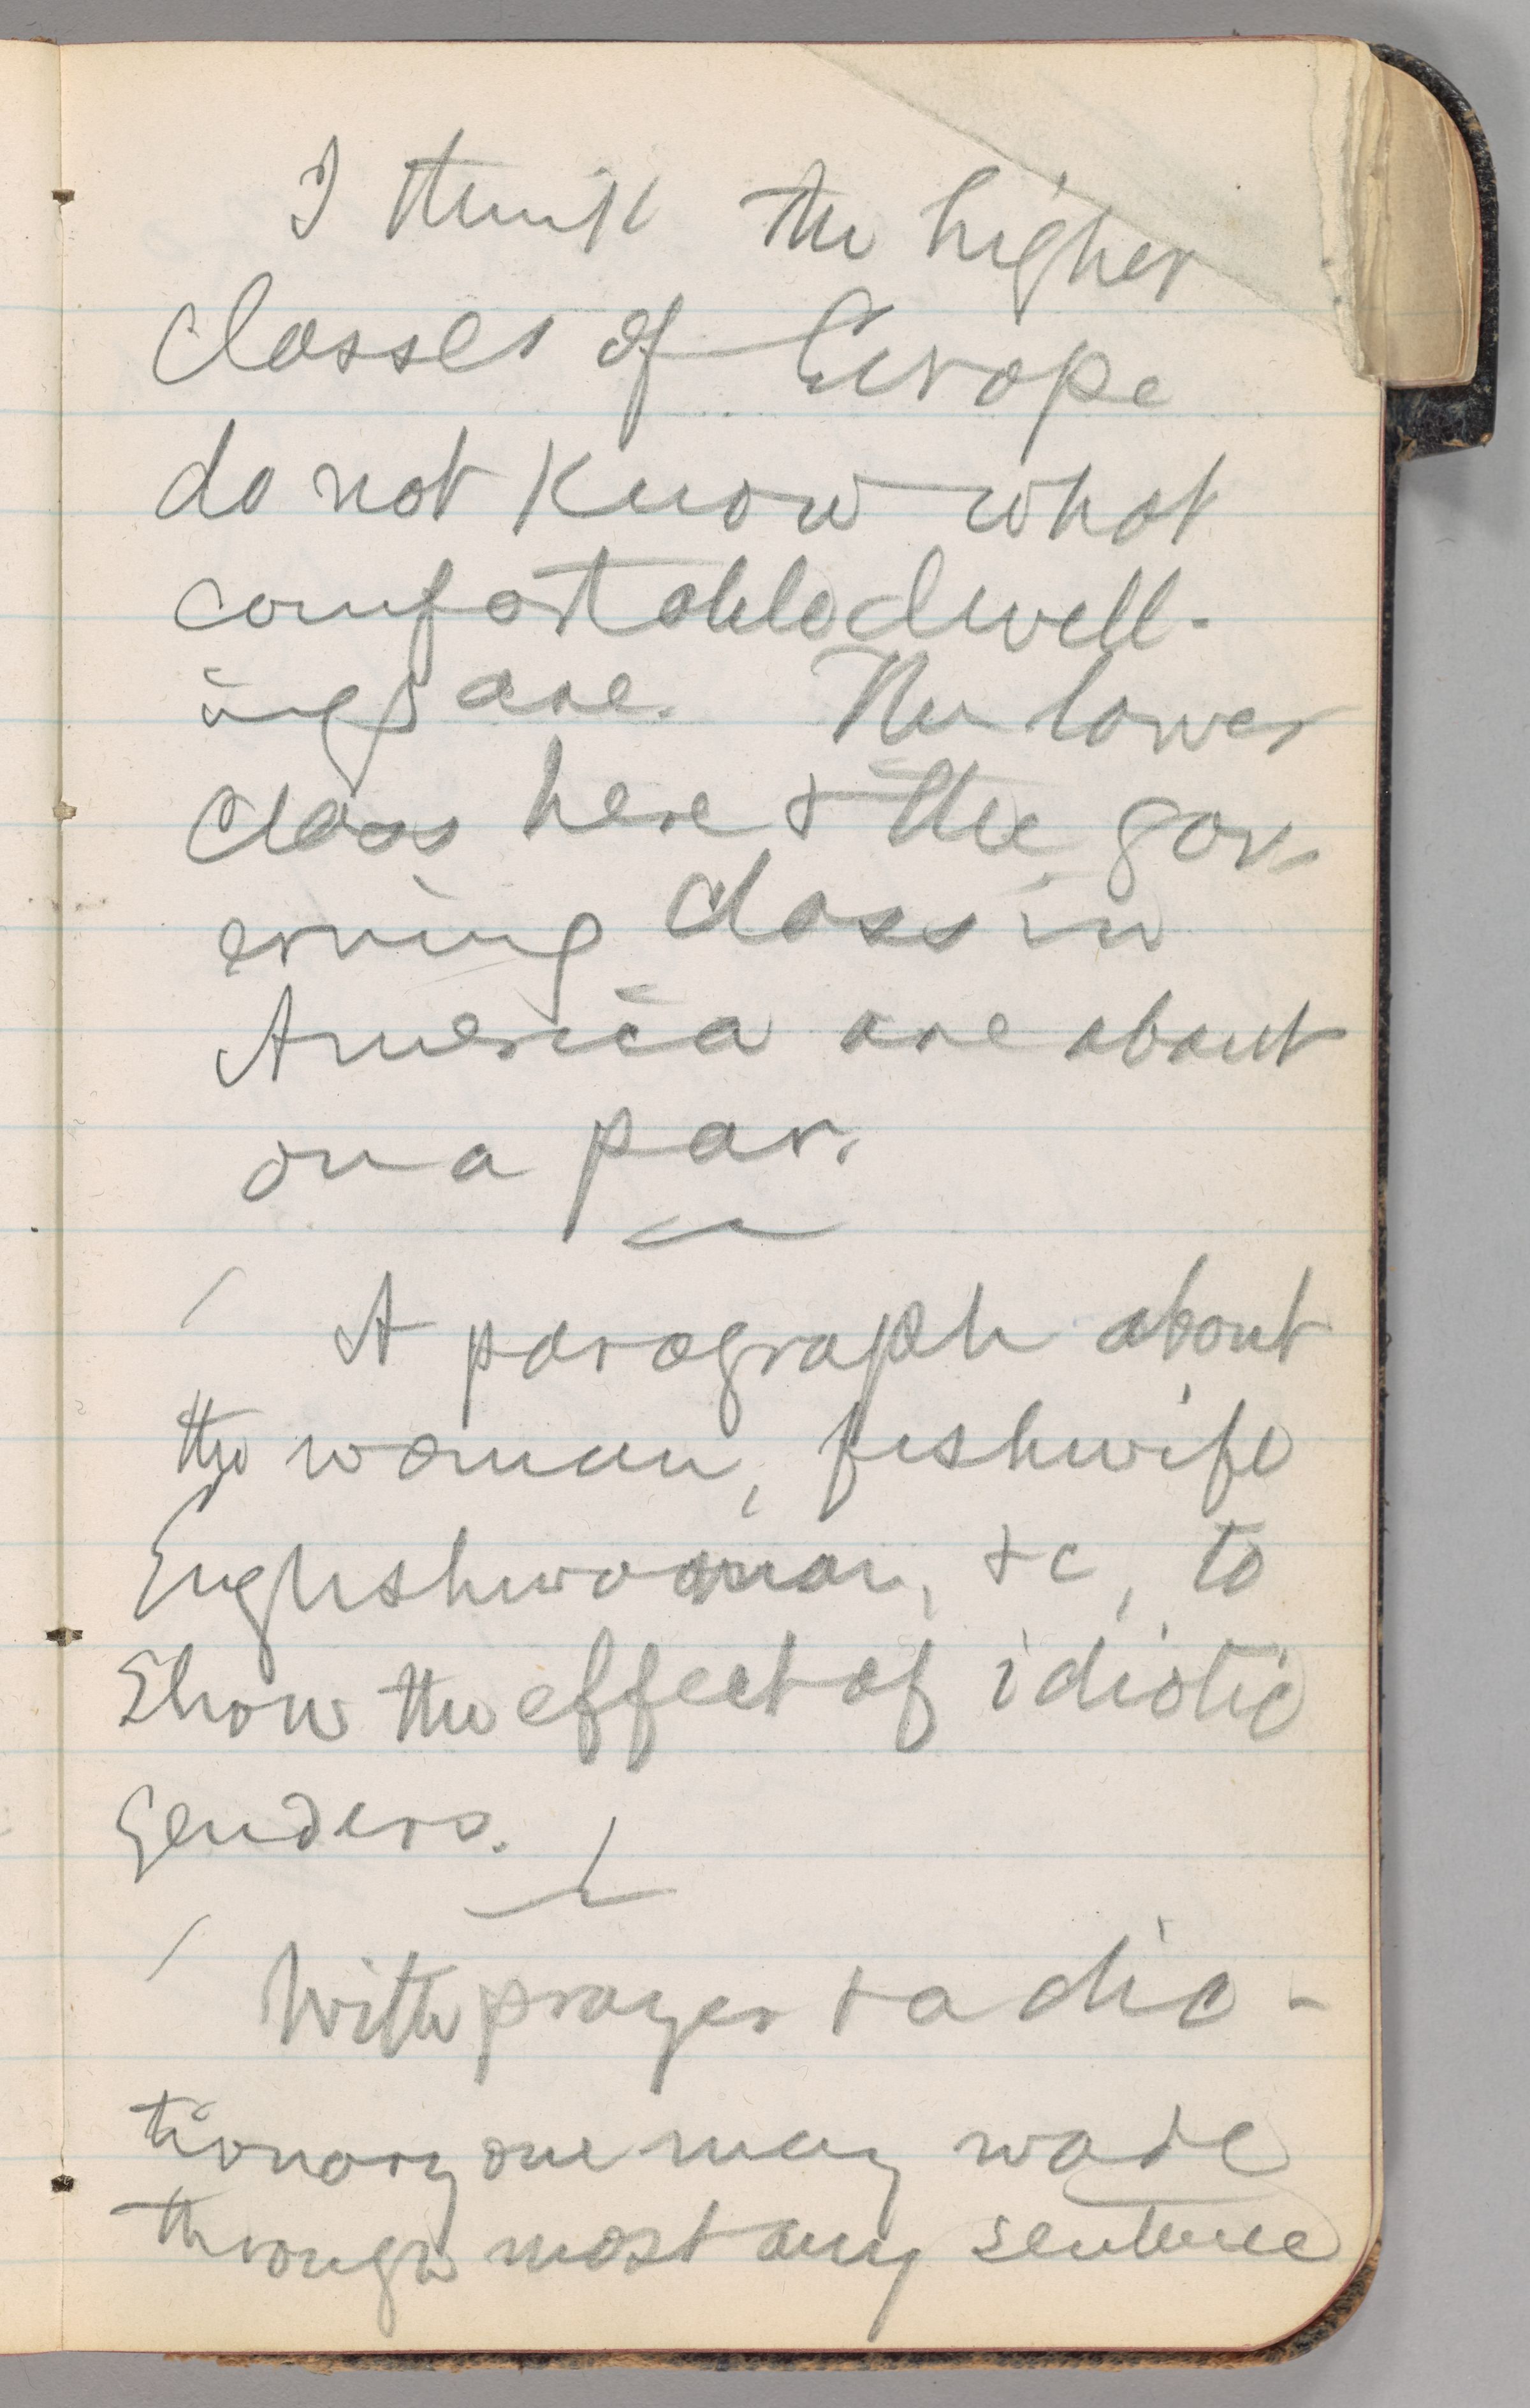 I think the higher
classes of Europe
do not know what
comfortable dwell-
ings are. The lower
class here & the gov-
erning class in
America are about
on a par.
A paragraph about
the woman, fishwife
Englishwoman, &c, to
show the effect of idiotic
genders.
With prayer & a dic-
tionary one may wade
through most any sentence